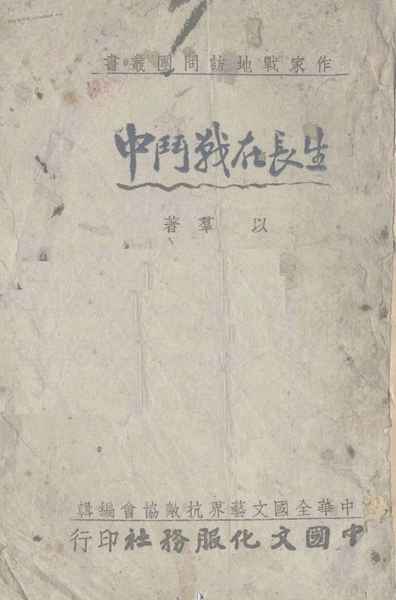 作家戰地訪問團叢書
生長在戰鬥中
以羣著
中華全國文藝界抗敵協會編輯
中國文化服務社印行